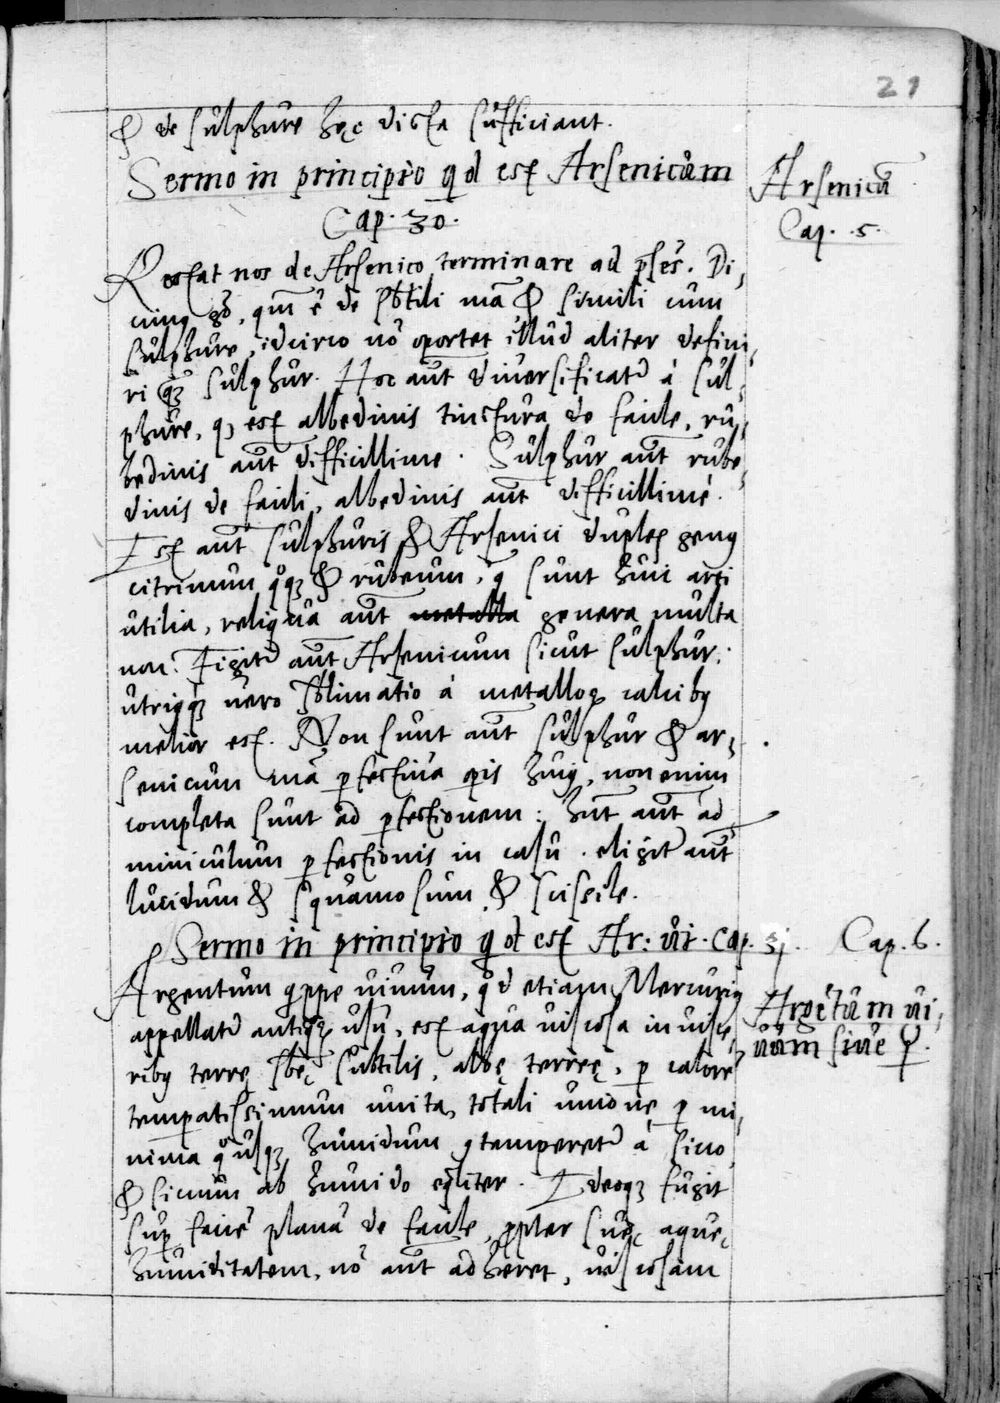 21
& de sulphure hęc dicta sufficiant.
Sermo in principio qd est Arsenicum
Cap. 30.
Arsenicū
Cap. 5.
Restat nos de Arsenico terminare ad p̄sēs. Di,
cimus gō, qm̄ ē de sbtili mā & simili cum
sulphure, idcirco nō oportet illud aliter defini,
ri q̄ȝ sulphur. Hoc aūt diversificatr̄ à sul,
phure, qȝ est albedinis tinctura de facile, ru,
bedinis aūt difficillime. Sulphur aūt rube,
dinis de facili, albedinis aūt difficillimè.
Est aūt sulphuris & Arsenici duplex genus
citrinum qͦqȝ & rubeum, q̄ sunt huic arti
utilia, reliqua aūt metalla genera multa
non. Figitr̄ aūt Arsenicum sicut sulphur:
utriusqȝ vero sblimatio à metalloꝝ calcibus
melior est. Non sunt aūt sulphur & ar,
senicum mā perfectiva opis huius, non enim
completa sunt ad perfectionem: hn̄t aūt ad
miniculum perfectionis in casu. eligitr̄ aūt
lucidum & squamosum & scissile.
Sermo in principio qd est Ar: vi. cap. 3j.
Cap. 6.
Argentum qppe vivum, qd etiam Mercurius
Argētum vi,
vum sive ☿.
appellatr̄ antiquoꝝ usu, est aqua viscosa in visce,
ribus terrę sbę subtilis, albę terreę, per calorē
temperatissimum unita, totali unione per mi,
nima qͦusqȝ humidum ꝯtemperetr̄ à sicco,
& siccum ab humido eqliter. Ideoqȝ fugit
super faciē planā de facile, propter suę aquę,
humiditatem, nō aūt adhęret, viscosam